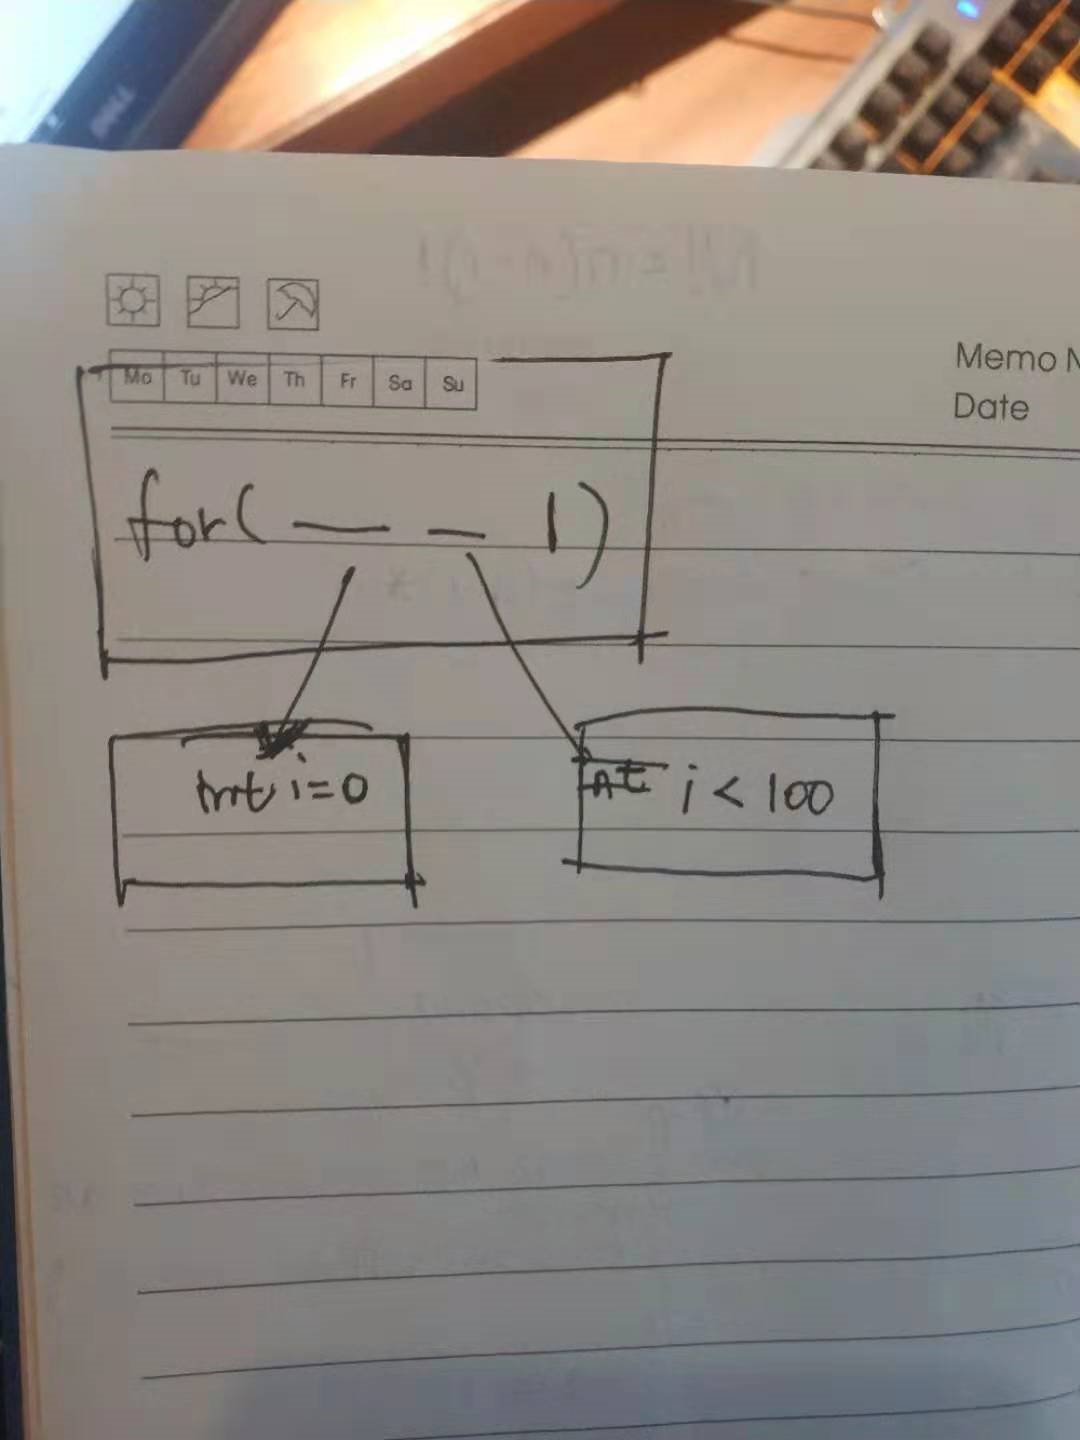 DELL
Mo Tu We Th Fr Sa Su
Memo N
Date
for( — — 1)
int i=0
i < 100